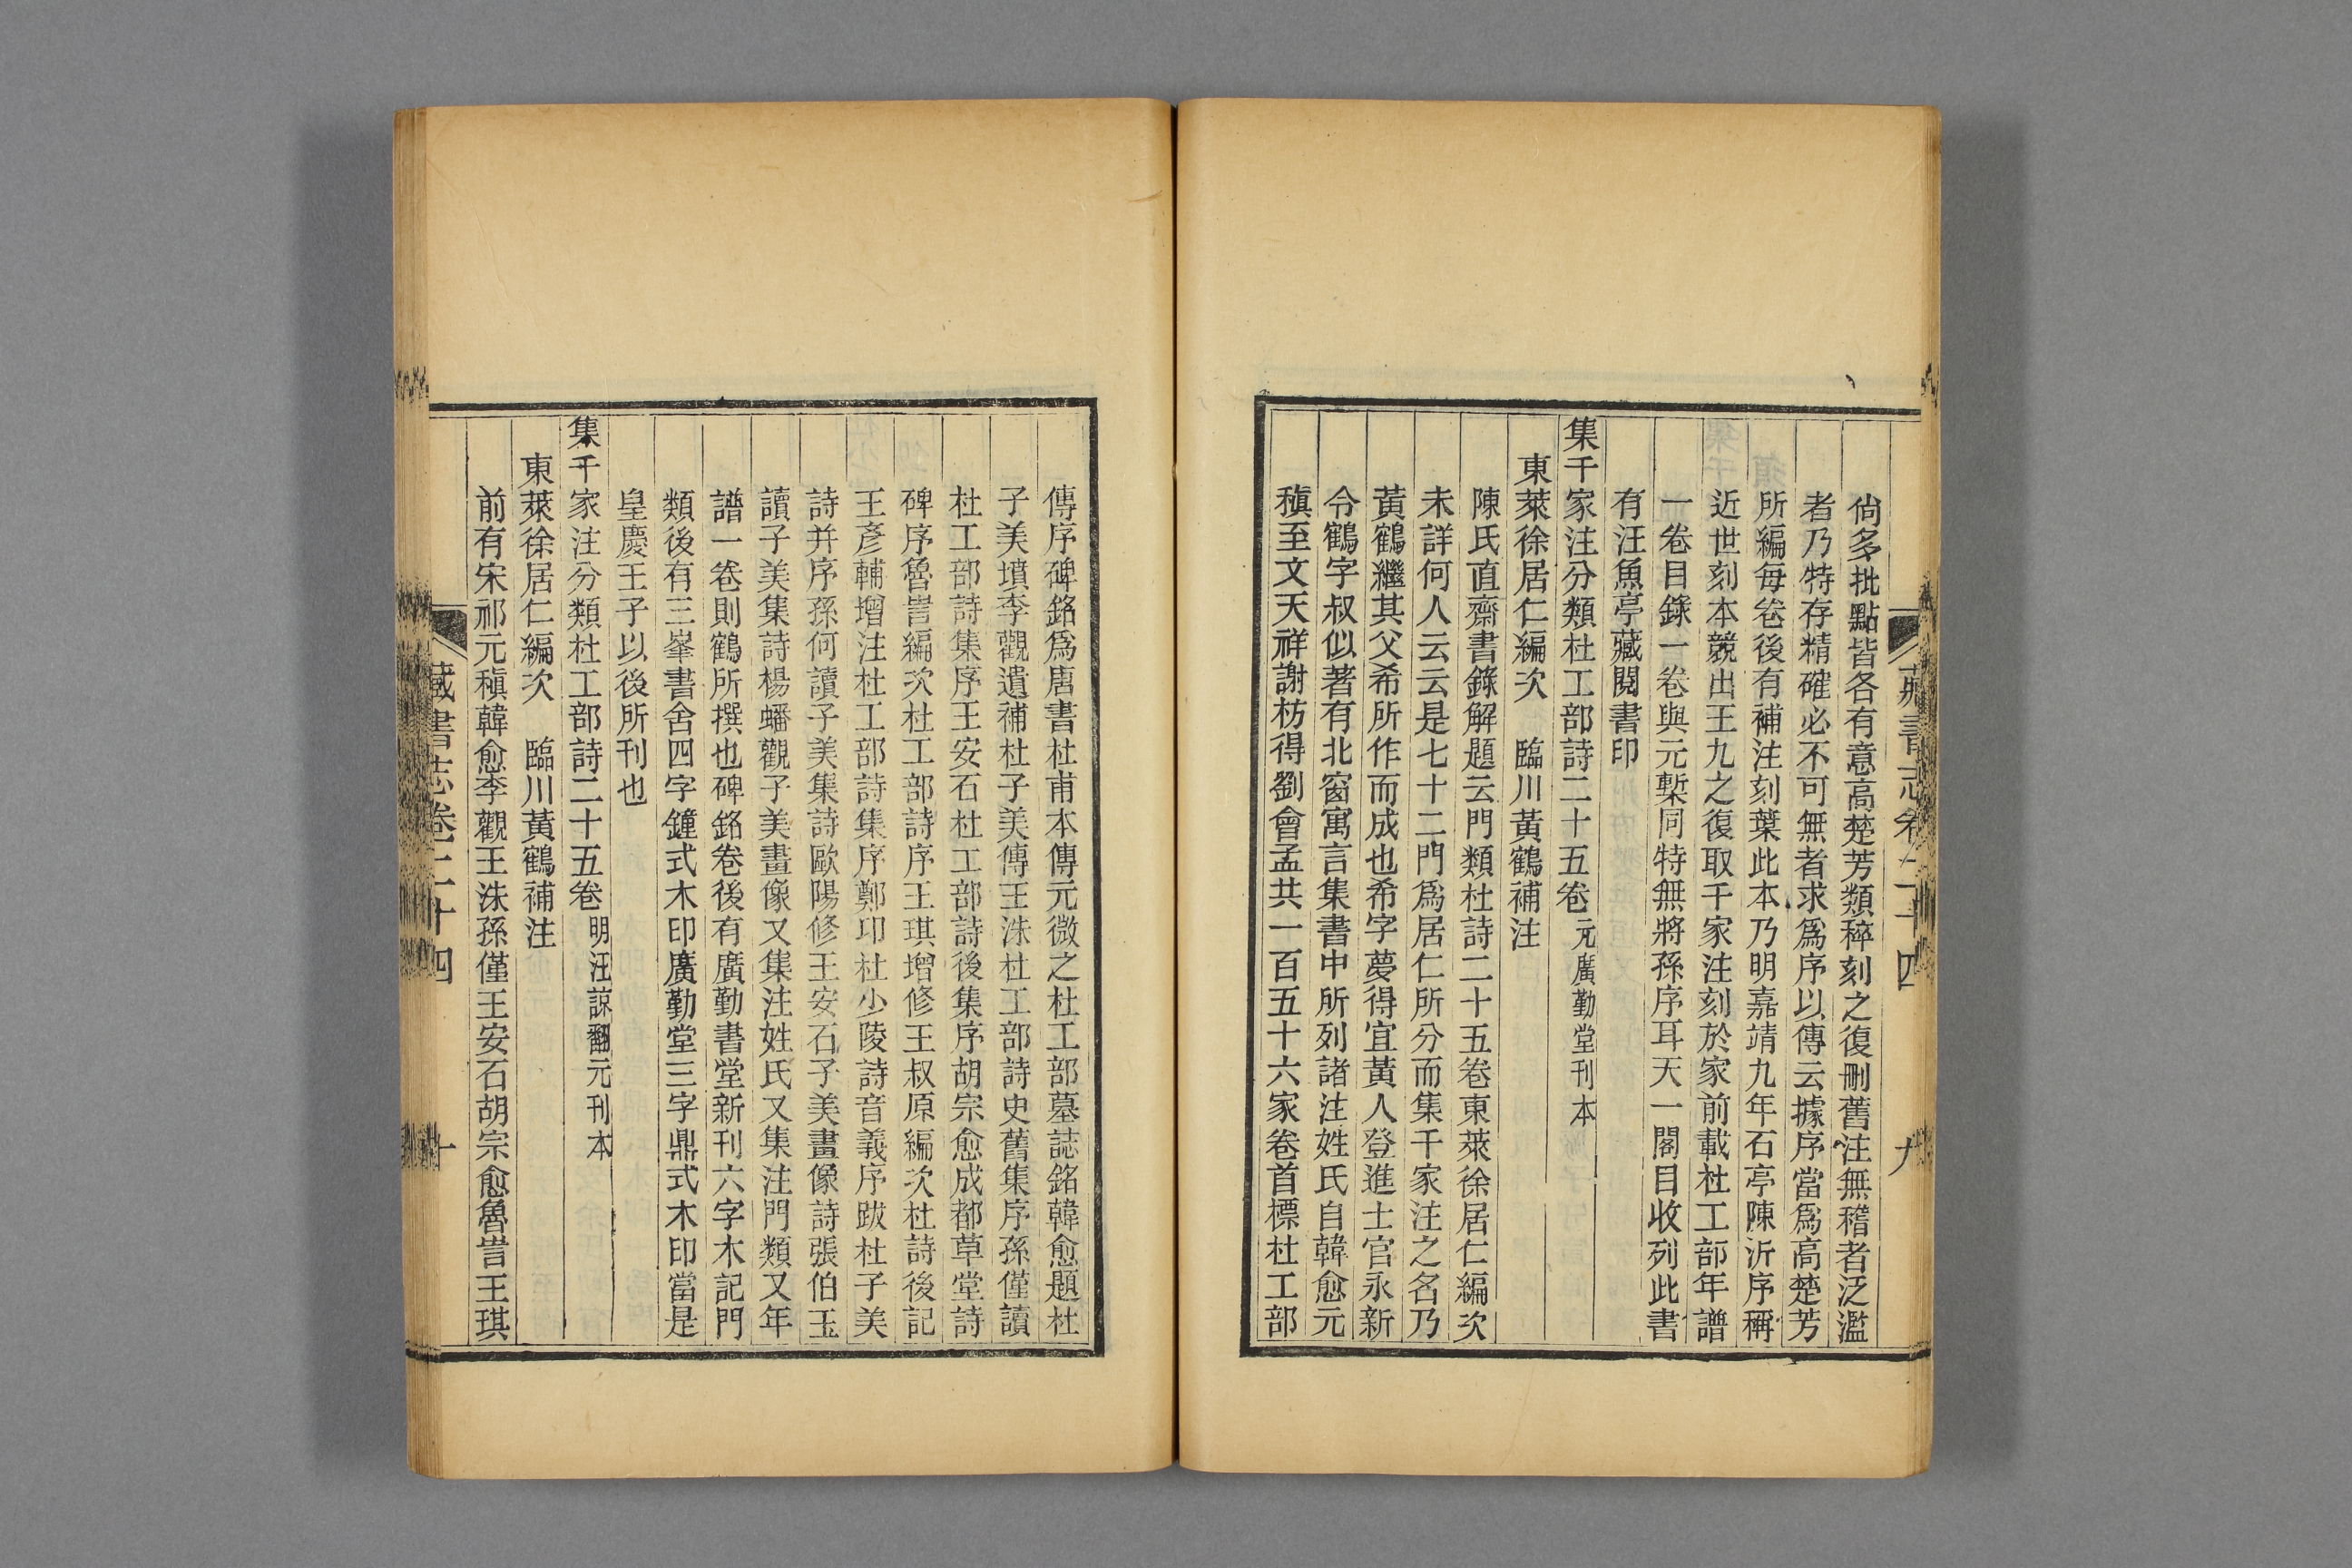 藏書志卷二十四
九
尙多批點皆各有意高楚芳類稡刻之復刪舊注無稽者泛濫
者乃特存精確必不可無者求爲序以傳云據序當爲高楚芳
所編每卷後有補注刻葉此本乃明嘉靖九年石亭陳沂序稱
近世刻本競出王九之復取千家注刻於家前載杜工部年譜
一卷目錄一卷與元槧同特無將孫序耳天一閣目收列此書
有汪魚亭藏閱書印
集千家注分類杜工部詩二十五卷 元廣勤堂刊本
東萊徐居仁編次 臨川黃鶴補注
陳氏直齋書錄解題云門類杜詩二十五卷東萊徐居仁編次
未詳何人云云是七十二門爲居仁所分而集千家注之名乃
黃鶴繼其父希所作而成也希字夢得宜黃人登進士官永新
令鶴字叔似著有北窗寓言集書中所列諸注姓氏自韓愈元
稹至文天祥謝枋得劉會孟共一百五十六家卷首標杜工部
傳序碑銘爲唐書杜甫本傳元微之杜工部墓誌銘韓愈題杜
子美墳李觀遺補杜子美傳王洙杜工部詩史舊集序孫僅讀
杜工部詩集序王安石杜工部詩後集序胡宗愈成都草堂詩
碑序魯訔編次杜工部詩序王琪增修王叔原編次杜詩後記
王彥輔增注杜工部詩集序鄭卬杜少陵詩音義序跋杜子美
詩并序孫何讀子美集詩歐陽修王安石子美畫像詩張伯玉
讀子美集詩楊蟠觀子美畫像又集注姓氏又集注門類又年
譜一卷則鶴所撰也碑銘卷後有廣勤書堂新刊六字木記門
類後有三峯書舍四字鐘式木印廣勤堂三字鼎式木印當是
皇慶壬子以後所刊也
集千家注分類杜工部詩二十五卷 明汪諒翻元刊本
東萊徐居仁編次 臨川黃鶴補注
前有宋祁元稹韓愈李觀王洙孫僅王安石胡宗愈魯訔王琪
藏書志卷二十四
十